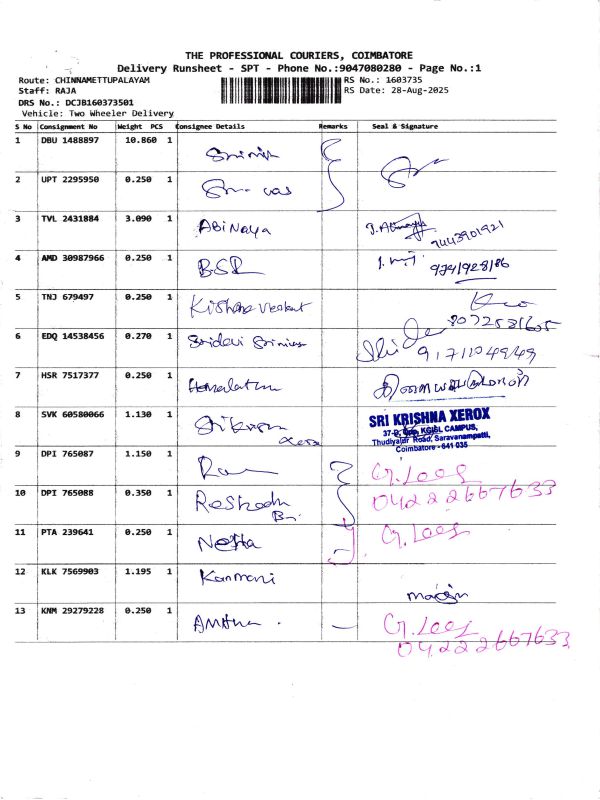 THE PROFESSIONAL COURIERS, COIMBATORE
Delivery Runsheet - SPT - Phone No.:9047080280 - Page No.:1
Route: CHINNAMETTUPALAYAM RS No.: 1603735
Staff: RAJA RS Date: 28-Aug-2025
DRS No.: DCJB160373501
Vehicle: Two Wheeler Delivery
S No Consignment No Weight PCS Consignee Details Remarks Seal & Signature
1 DBU 1488897 10.860 1
2 UPT 2295950 0.250 1
3 TVL 2431884 3.090 1 Abinaya
9443901921
4 AMD 30987966 0.250 1 BSR
5 TNJ 679497 0.250 1
6 EDQ 14538456 0.270 1 Sridevi
9171104949
7 HSR 7517377 0.250 1 Hemalatha
8 SVK 60580066 1.130 1
SRI KRISHNA XEROX
KGISL CAMPUS,
Thudiyalur Road, Saravanampatti,
Coimbatore - 641 035
9 DPI 765087 1.150 1
10 DPI 765088 0.350 1
04222667633
11 PTA 239641 0.250 1
12 KLK 7569903 1.195 1 Kanmani
13 KNM 29279228 0.250 1
04222667633